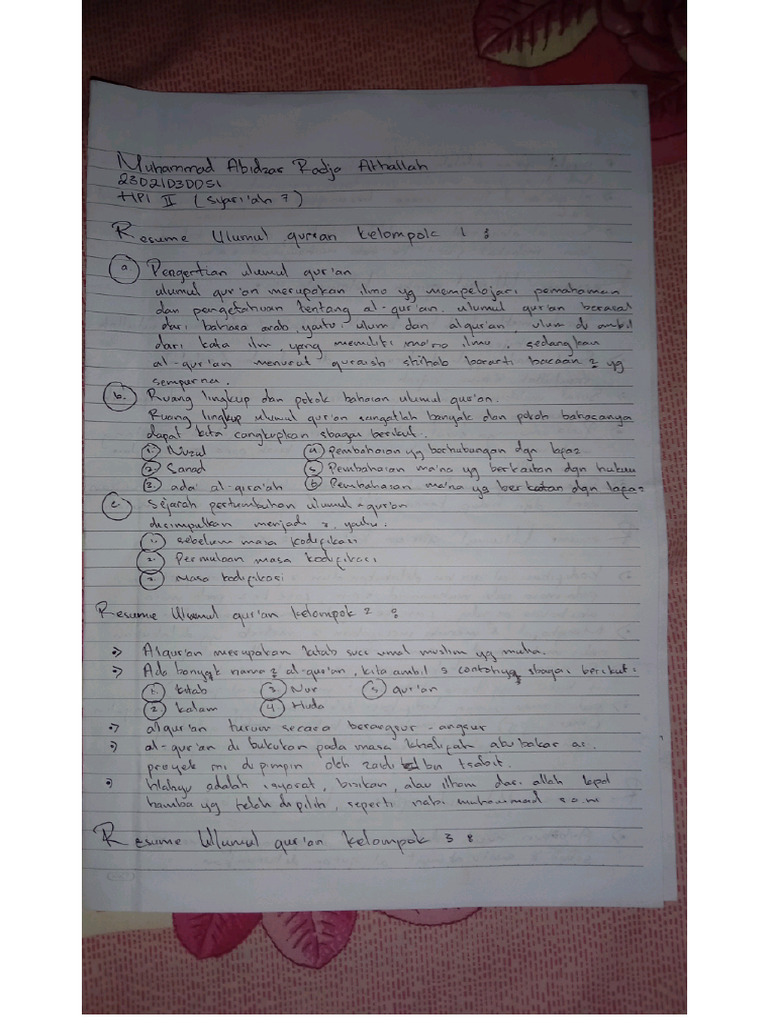 Muhammad Abidzar Radja Athallah
23021030051
HPI II (Syari'ah 7)
Resume Ulumul qur'an kelompok 1 :
a Pengertian ulumul qur'an
ulumul qur'an merupakan ilmu yg mempelajari pemahaman
dan pengetahuan tentang al-qur'an. ulumul qur'an berasal
dari bahasa arab, yaitu ulum dan alqur'an, ulum di ambil
dari kata ilm, yang memiliki ma'na ilmu, sedangkan
al-qur'an menurut quraish shihab berarti bacaan 2 yg
sempurna.
b. Ruang lingkup dan pokok bahasan ulumul qur'an.
Ruang lingkup ulumul qur'an sangatlah banyak dan pokok bahasanya
dapat kita cangkupkan sbagai berikut.
1. Nuzul 4 Pembahasan yg berhubungan dgn lafaz
2. Sanad 5 Pembahasan ma'na yg berkaitan dgn hukum
3. ada' al-qira'ah 6 Pembahasan ma'na yg berkatan dgn lafaz
c. Sejarah pertumbuhan ulumul-qur'an
disimpulkan menjadi 3, yaitu.
1. sebelum masa kodifikasi
2. Permulaan masa kodifikasi
3. Masa kodifikasi
Resume Ulumul qur'an kelompok 2 :
Alqur'an merupakan kitab suci umat muslim yg mulia.
Ada banyak nama 2 al-qur'an, kita ambil 5 contohnya sbagai berikut:
1. kitab 3 Nur 5 qur'an
2 kalam 4 Huda
alqur'an turun secara berangsur-angsur
al-qur'an di bukukan pada masa khalifah abu bakar as.
proyek ini di pimpin oleh zaid bin tsabit.
Wahyu adalah isyarat, bisikan, atau ilham dari allah kpd
hamba yg telah dipilih, seperti nabi muhammad s.a.w
Resume Ulumul qur'an kelompok 3 :